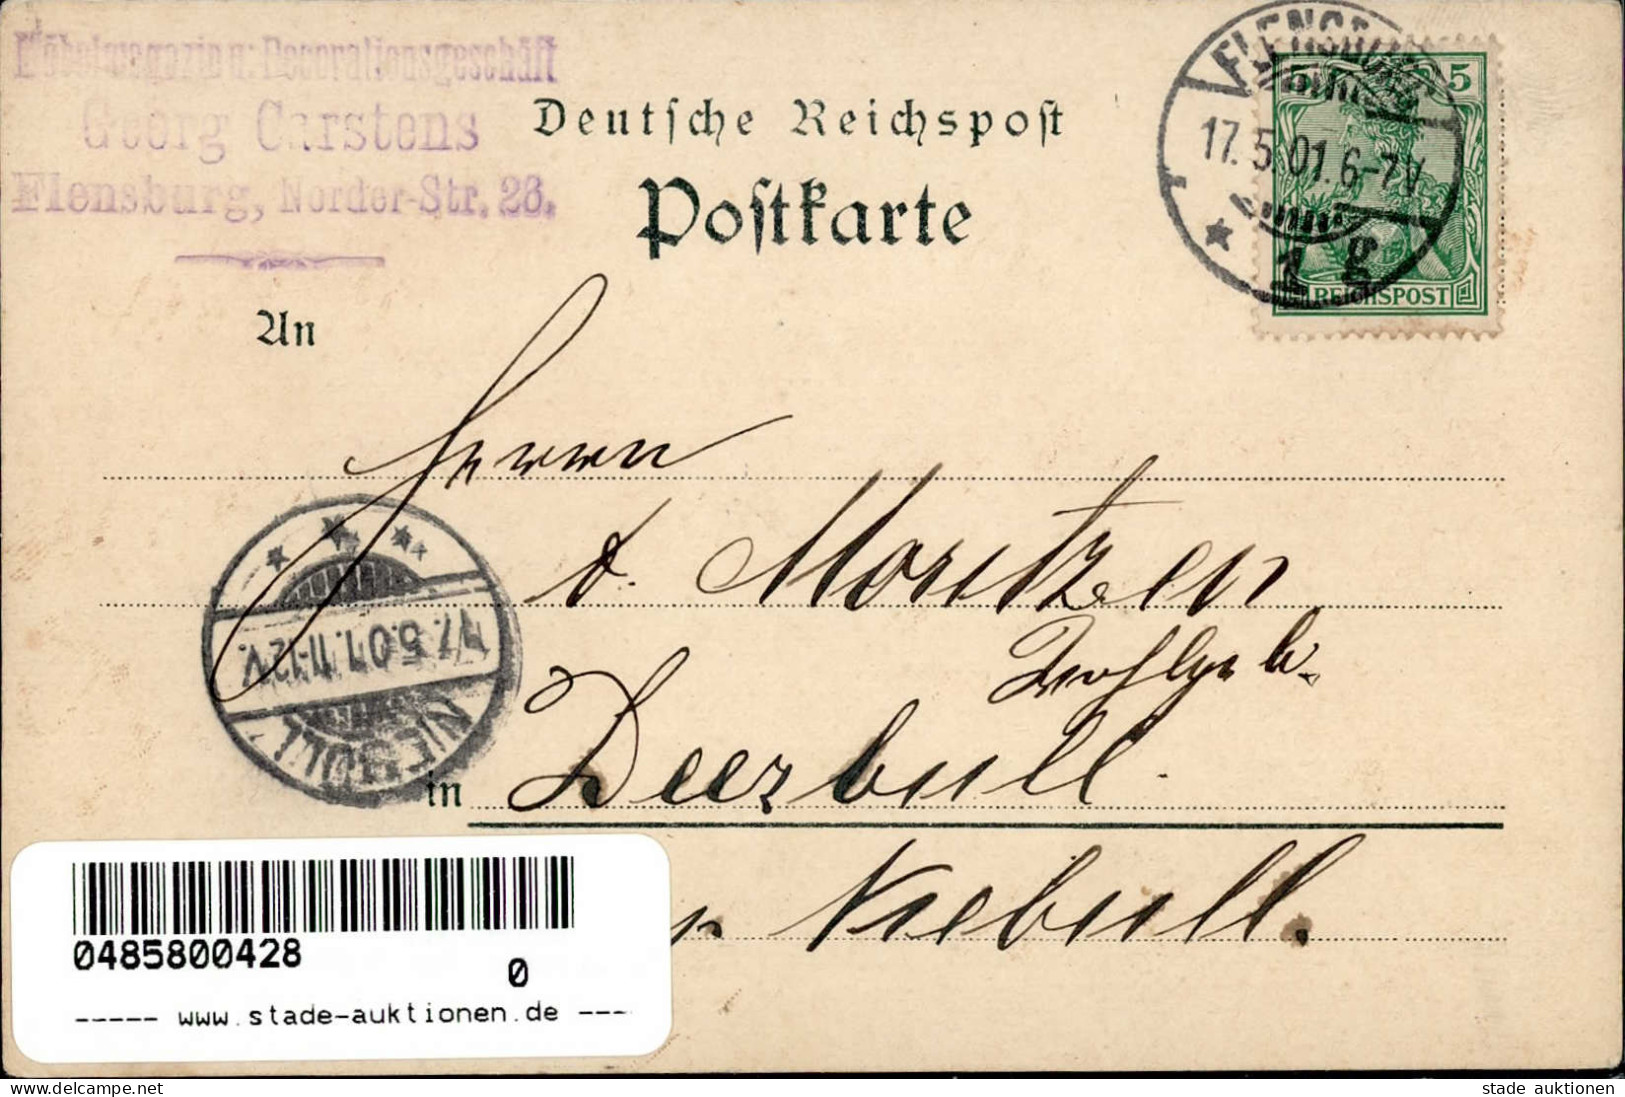 Möbelmagazin u. Decorationsgeschäft
Georg Carstens
Flensburg, Norder-Str. 26.
Deutsche Reichspost
Postkarte
FLENSBURG
17.5.01.6-7V
* 1 g
5 5
REICHSPOST
An
Herrn
d. Moritzen
Wohlgeb.
in Deezbüll
p Niebüll.
17.5.01.11-12V.
NIEBÜLL
0485800428
0
----- www.stade-auktionen.de ----
stade auktionen